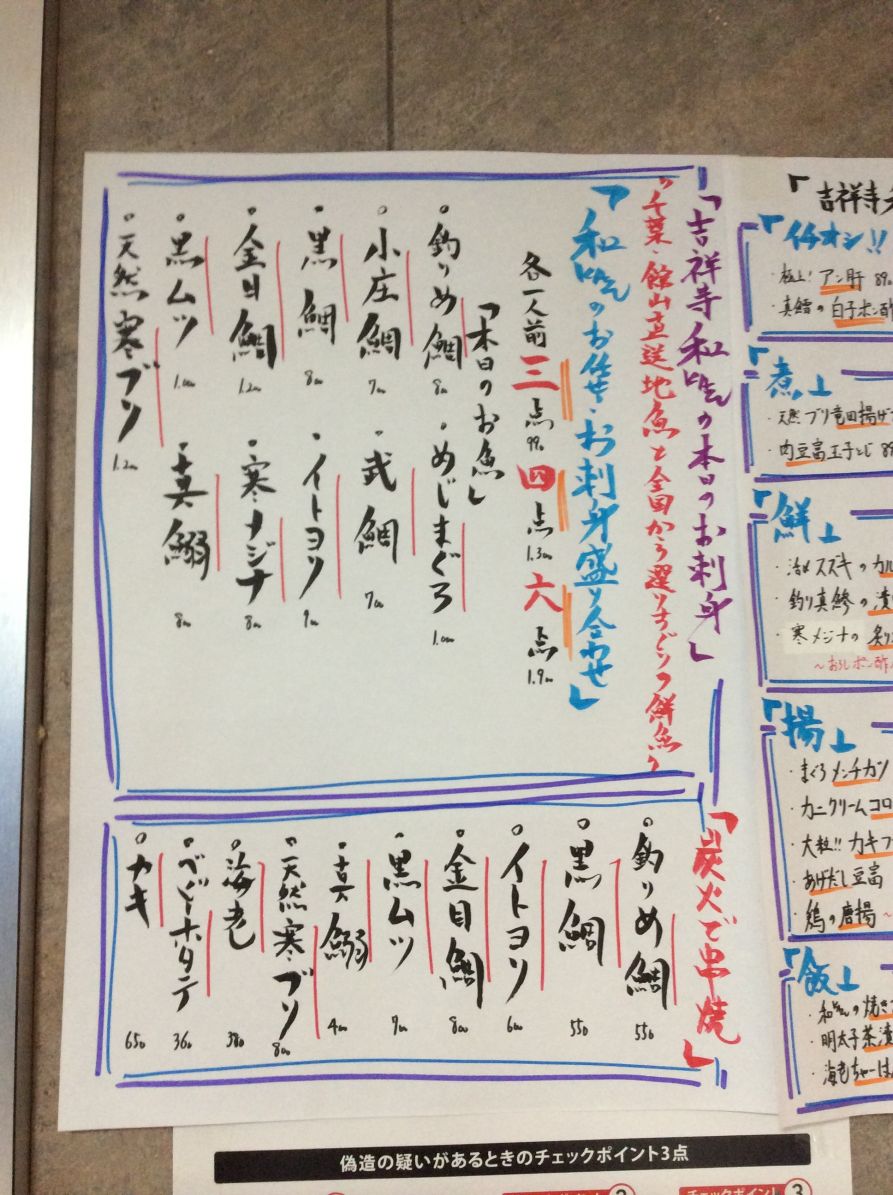 「吉祥寺 和味の本日のお刺身」
〃千葉・館山直送地魚と全国から選りすぐりの鮮魚〃
「和味のお任せ・お刺身盛り合わせ」
各一人前 三点 四点 六点
「本日のお魚」
釣りめ鯛
めじまぐろ
小庄鯛
武鯛
黒鯛
イトヨリ
金目鯛
寒メジナ
黒ムツ
真鰯
天然寒ブリ
「炭火で串焼」
釣りめ鯛 550
黒鯛 550
イトヨリ
金目鯛
黒ムツ
真鰯
天然寒ブリ
海老 380
ベビーホタテ 360
カキ 650
「吉祥寺
「イチオシ!!
・極上!アン肝
・真鱈の白子ポン酢
「煮」
・天然ブリ竜田揚げ
・肉豆富玉子とじ
「鮮」
・〆スズキのカル
・釣り真鯵の
・寒メジナの炙り
〜おろしポン酢
「揚」
・まぐろメンチカツ
・カニクリームコロ
・大粒!!カキフ
・あげだし豆富
・鶏の唐揚〜
「飯」
・和味の焼き
・明太子茶漬
・海老ちゃーはん
偽造の疑いがあるときのチェックポイント3点
チェックポイント 3